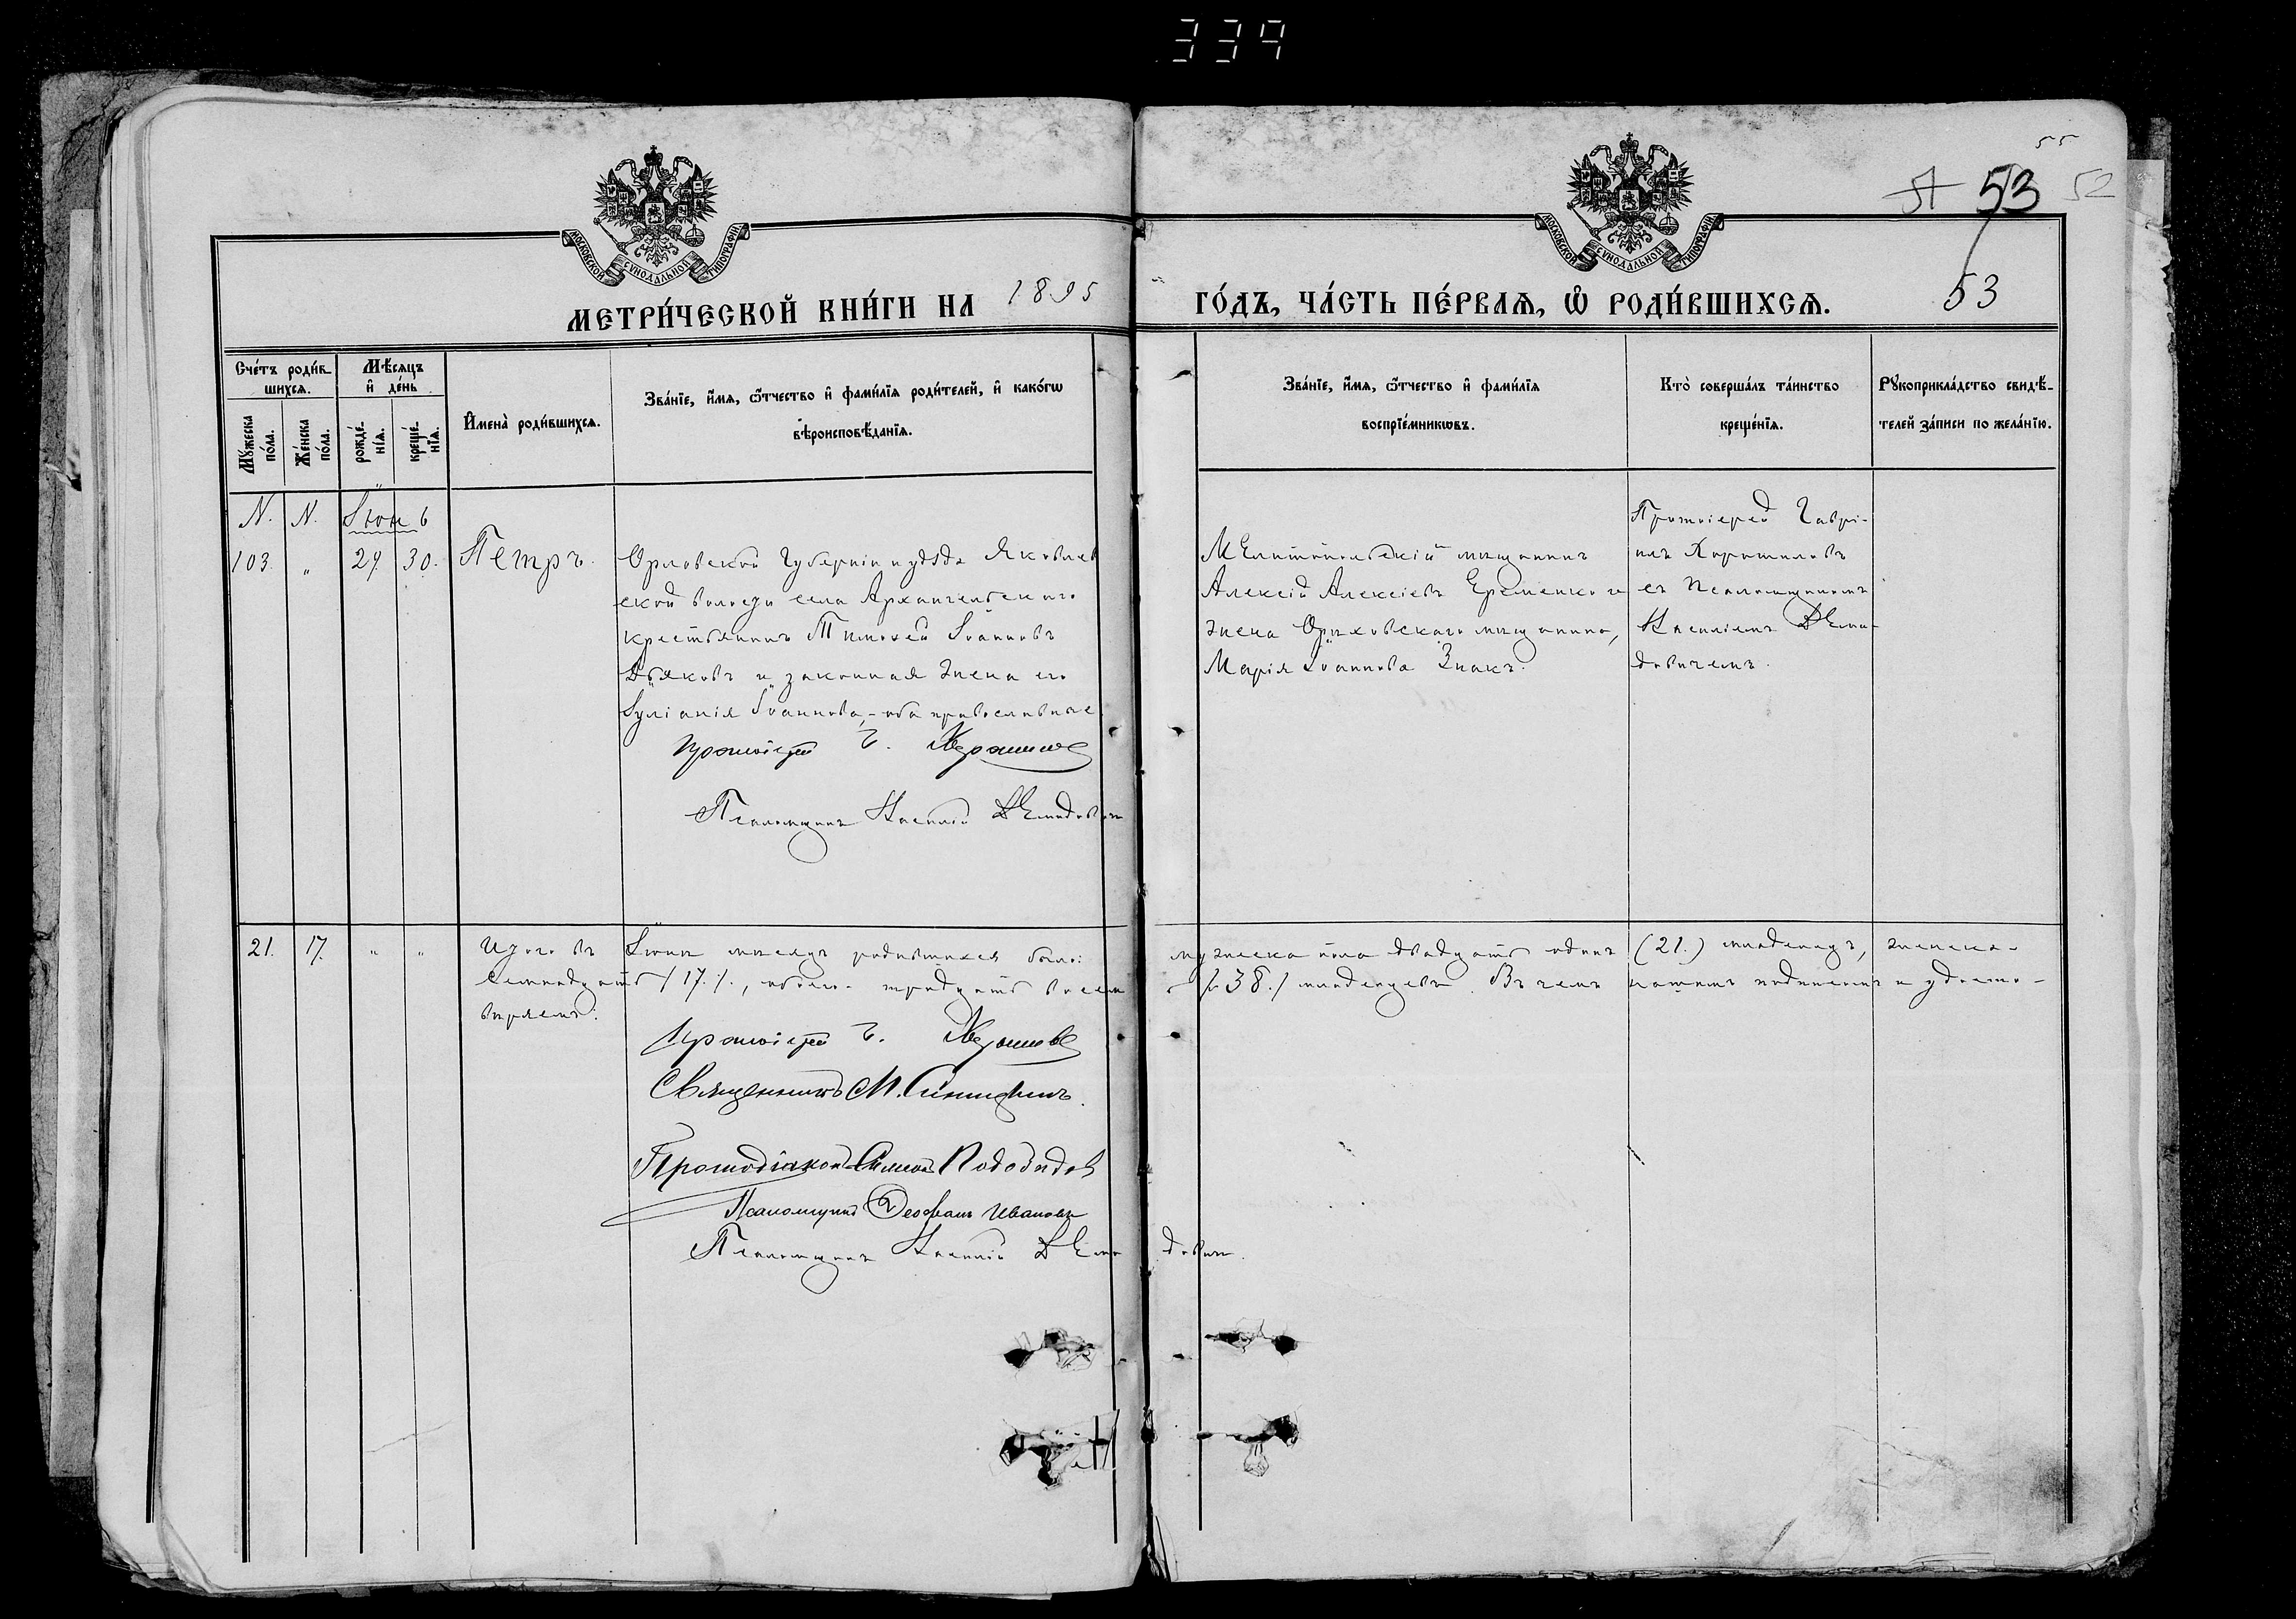 339
55
51 53 52
МОСКОВСКОЙ СѴНОДАЛЬНОЙ ТИПОГРАФІИ
МОСКОВСКОЙ СѴНОДАЛЬНОЙ ТИПОГРАФІИ
МЕТРИ́ЧЕСКОЙ КНИ́ГИ НА 1895 ГО́ДЪ, ЧА́СТЬ ПЕ́РВАѦ, Ѡ҆ РОДИ́ВШИХСѦ. 53
Сче́тъ роди́в-
шихсѧ.
Мѣ́сѧцъ
и҆ де́нь
Мꙋ́жеска по́ла.
Же́нска по́ла.
рожде́-нїѧ.
креще́-нїѧ.
И҆мена̀ роди́вшихсѧ.
Зва́нїе, и҆́мѧ, ѻ҆́тчество и҆ фами́лїѧ роди́телей, и҆ како́гѡ
вѣроисповѣ́данїѧ.
Зва́нїе, и҆́мѧ, ѻ҆́тчество и҆ фами́лїѧ
воспрїе́мникѡвъ.
Кто̀ соверша́лъ та́инство
креще́нїѧ.
Рꙋкоприкла́дство свидѣ́-
телей за́писи по жела́нїю.
N. N. Іюнь
103. " 29 30. Петръ.
Орловской Губерніи и уѣзда Яковлев
ской волости села Архангельскаго
крестьянинъ Тимоѳей Іоанновъ
Дьяковъ и законная жена его
Іуліанія Іоаннова, - оба православные.
Протоіерей Г. Хорошиловъ
Псаломщикъ Василій Демидовичъ
Мелитопольскій мещанинъ
Алексій Алексіевъ Еременко и
жена Орѣховскаго мещанина,
Марія Іоаннова Знакъ.
Протоіерей Гаврі-
илъ Хорошиловъ
съ Псаломщикомъ
Василіемъ Деми-
довичемъ.
21. 17. " " Итого въ Іюнѣ месяцѣ родившихся было: мужеска пола двадцать одинъ (21.) младенецъ, женска-
семнадцать /17./., обоего - тридцать восем ь /38./ младенцевъ. Въ чемъ нашимъ подписомъ и удосто-
веряемъ:
Протоіерей Г. Хорошиловъ
Священникъ М.
Протодіаконъ Симеон
Псаломщикъ Ѳеофанъ Ивановъ
Псаломщикъ Василій Деми довичъ.